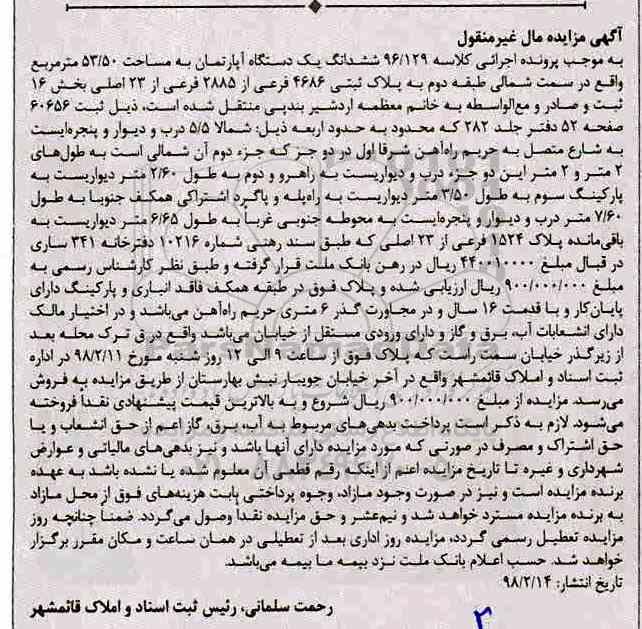 آگهی مزایده مال غیرمنقول
به موجب پرونده اجرائی کلاسه ۹۶/۱۲۹ ششدانگ یک دستگاه آپارتمان به مساحت ۵۳/۵۰ مترمربع
واقع در سمت شمالی طبقه دوم به پلاک ثبتی ۴۶۸۶ فرعی از ۲۸۸۵ فرعی از ۲۳ اصلی بخش ۱۶
ثبت و صادر و مع‌الواسطه به خانم معظمه اردشیر بندپی منتقل شده است، ذیل ثبت ۶۰۶۵۶
صفحه ۵۲ دفتر جلد ۲۸۲ که محدود به حدود اربعه ذیل: شمالا ۵/۵ درب و دیوار و پنجره‌ایست
به شارع متصل به حریم راه‌آهن شرقا اول در دو جز که جزء دوم آن شمالی است به طول‌های
۲ متر و ۲ متر این دو جزء درب و دیواریست به راهرو و دوم به طول ۲/۶۰ متر دیواریست به
پارکینگ سوم به طول ۳/۵۰ متر دیواریست به راه‌پله و پاگرد اشتراکی همکف جنوبا به طول
۷/۶۰ متر درب و دیوار و پنجره‌ایست به محوطه جنوبی غرباً به طول ۶/۶۵ متر دیواریست به
باقی‌مانده پلاک ۱۵۲۴ فرعی از ۲۳ اصلی که طبق سند رهنی شماره ۱۰۲۱۶ دفترخانه ۳۴۱ ساری
در قبال مبلغ ۴۴۰۰۱۰۰۰۰ ریال در رهن بانک ملت قرار گرفته و طبق نظر کارشناس رسمی به
مبلغ ۹۰۰/۰۰۰/۰۰۰ ریال ارزیابی شده و پلاک فوق در طبقه همکف فاقد انباری و پارکینگ دارای
پایان‌کار و با قدمت ۱۶ سال و در مجاورت گذر ۶ متری حریم راه‌آهن می‌باشد و در اختیار مالک
دارای انشعابات آب، برق و گاز و دارای ورودی مستقل از خیابان می‌باشد واقع در ق ترک محله بعد
از زیرگذر خیابان سمت راست که پلاک فوق از ساعت ۹ الی ۱۲ روز شنبه مورخ ۹۸/۲/۱۱ در اداره
ثبت اسناد و املاک قائمشهر واقع در آخر خیابان جویبار نبش بهارستان از طریق مزایده به فروش
می‌رسد. مزایده از مبلغ ۹۰۰/۰۰۰/۰۰۰ ریال شروع و به بالاترین قیمت پیشنهادی نقدا فروخته
می‌شود. لازم به ذکر است پرداخت بدهی‌های مربوط به آب، برق، گاز اعم از حق انشعاب و یا
حق اشتراک و مصرف در صورتی که مورد مزایده دارای آنها باشد و نیز بدهی‌های مالیاتی و عوارض
شهرداری و غیره تا تاریخ مزایده اعم از اینکه رقم قطعی آن معلوم شده یا نشده باشد به عهده
برنده مزایده است و نیز در صورت وجود مازاد، وجوه پرداختی بابت هزینه‌های فوق از محل مازاد
به برنده مزایده مسترد خواهد شد و نیم‌عشر و حق مزایده نقداً وصول می‌گردد. ضمناً چنانچه روز
مزایده تعطیل رسمی گردد، مزایده روز اداری بعد از تعطیلی در همان ساعت و مکان مقرر برگزار
خواهد شد. حسب اعلام بانک ملت نزد بیمه ما بیمه می‌باشد.
تاریخ انتشار: ۹۸/۲/۱۴
رحمت سلمانی، رئیس ثبت اسناد و املاک قائمشهر
۳